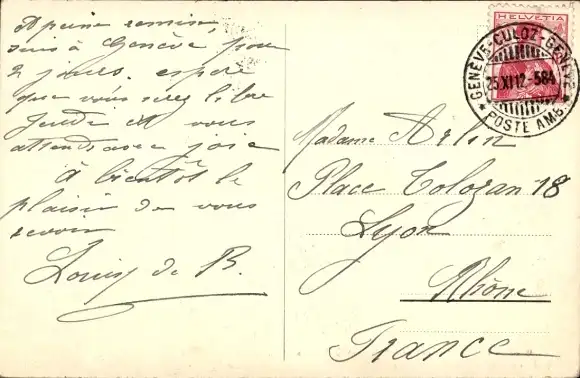 A peine remise,
suis à Genève pour
2 jours. espère
que vous serez libre
Jeudi et vous
attends avec joie
à bientôt le
plaisir de vous
revoir
Louis de B.
HELVETIA
GENÈVE-CULOZ-GENÈVE
25.XI.12.-584
* POSTE AMB. *
Madame Arlin
Place Tolozan 18
Lyon
Rhône
France